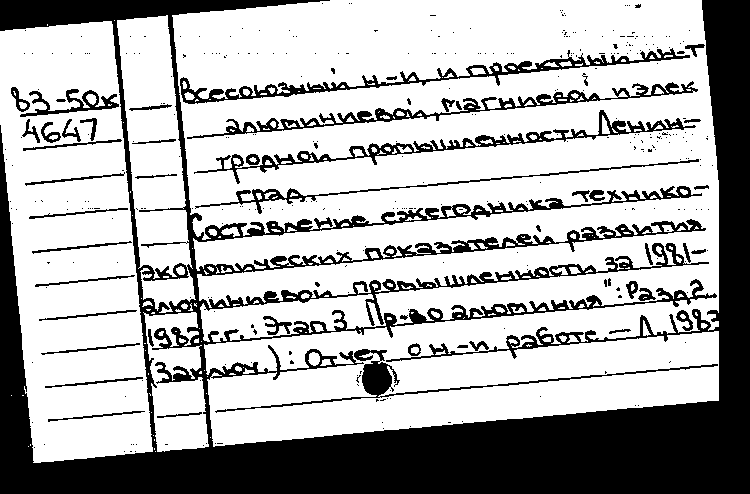 83-50к
4647
Всесоюзный н.-и. и проектный ин-т
алюминиевой, магниевой и элек
тродной промышленности. Ленин-
град.
Составление ежегодника технико-
экономических показателей развития
алюминиевой промышленности за 1981-
1982 г.г.: Этап 3 „Пр-во алюминия": Разд 2...
(Заключ.): Отчет о н.-и. работе. — Л., 1983